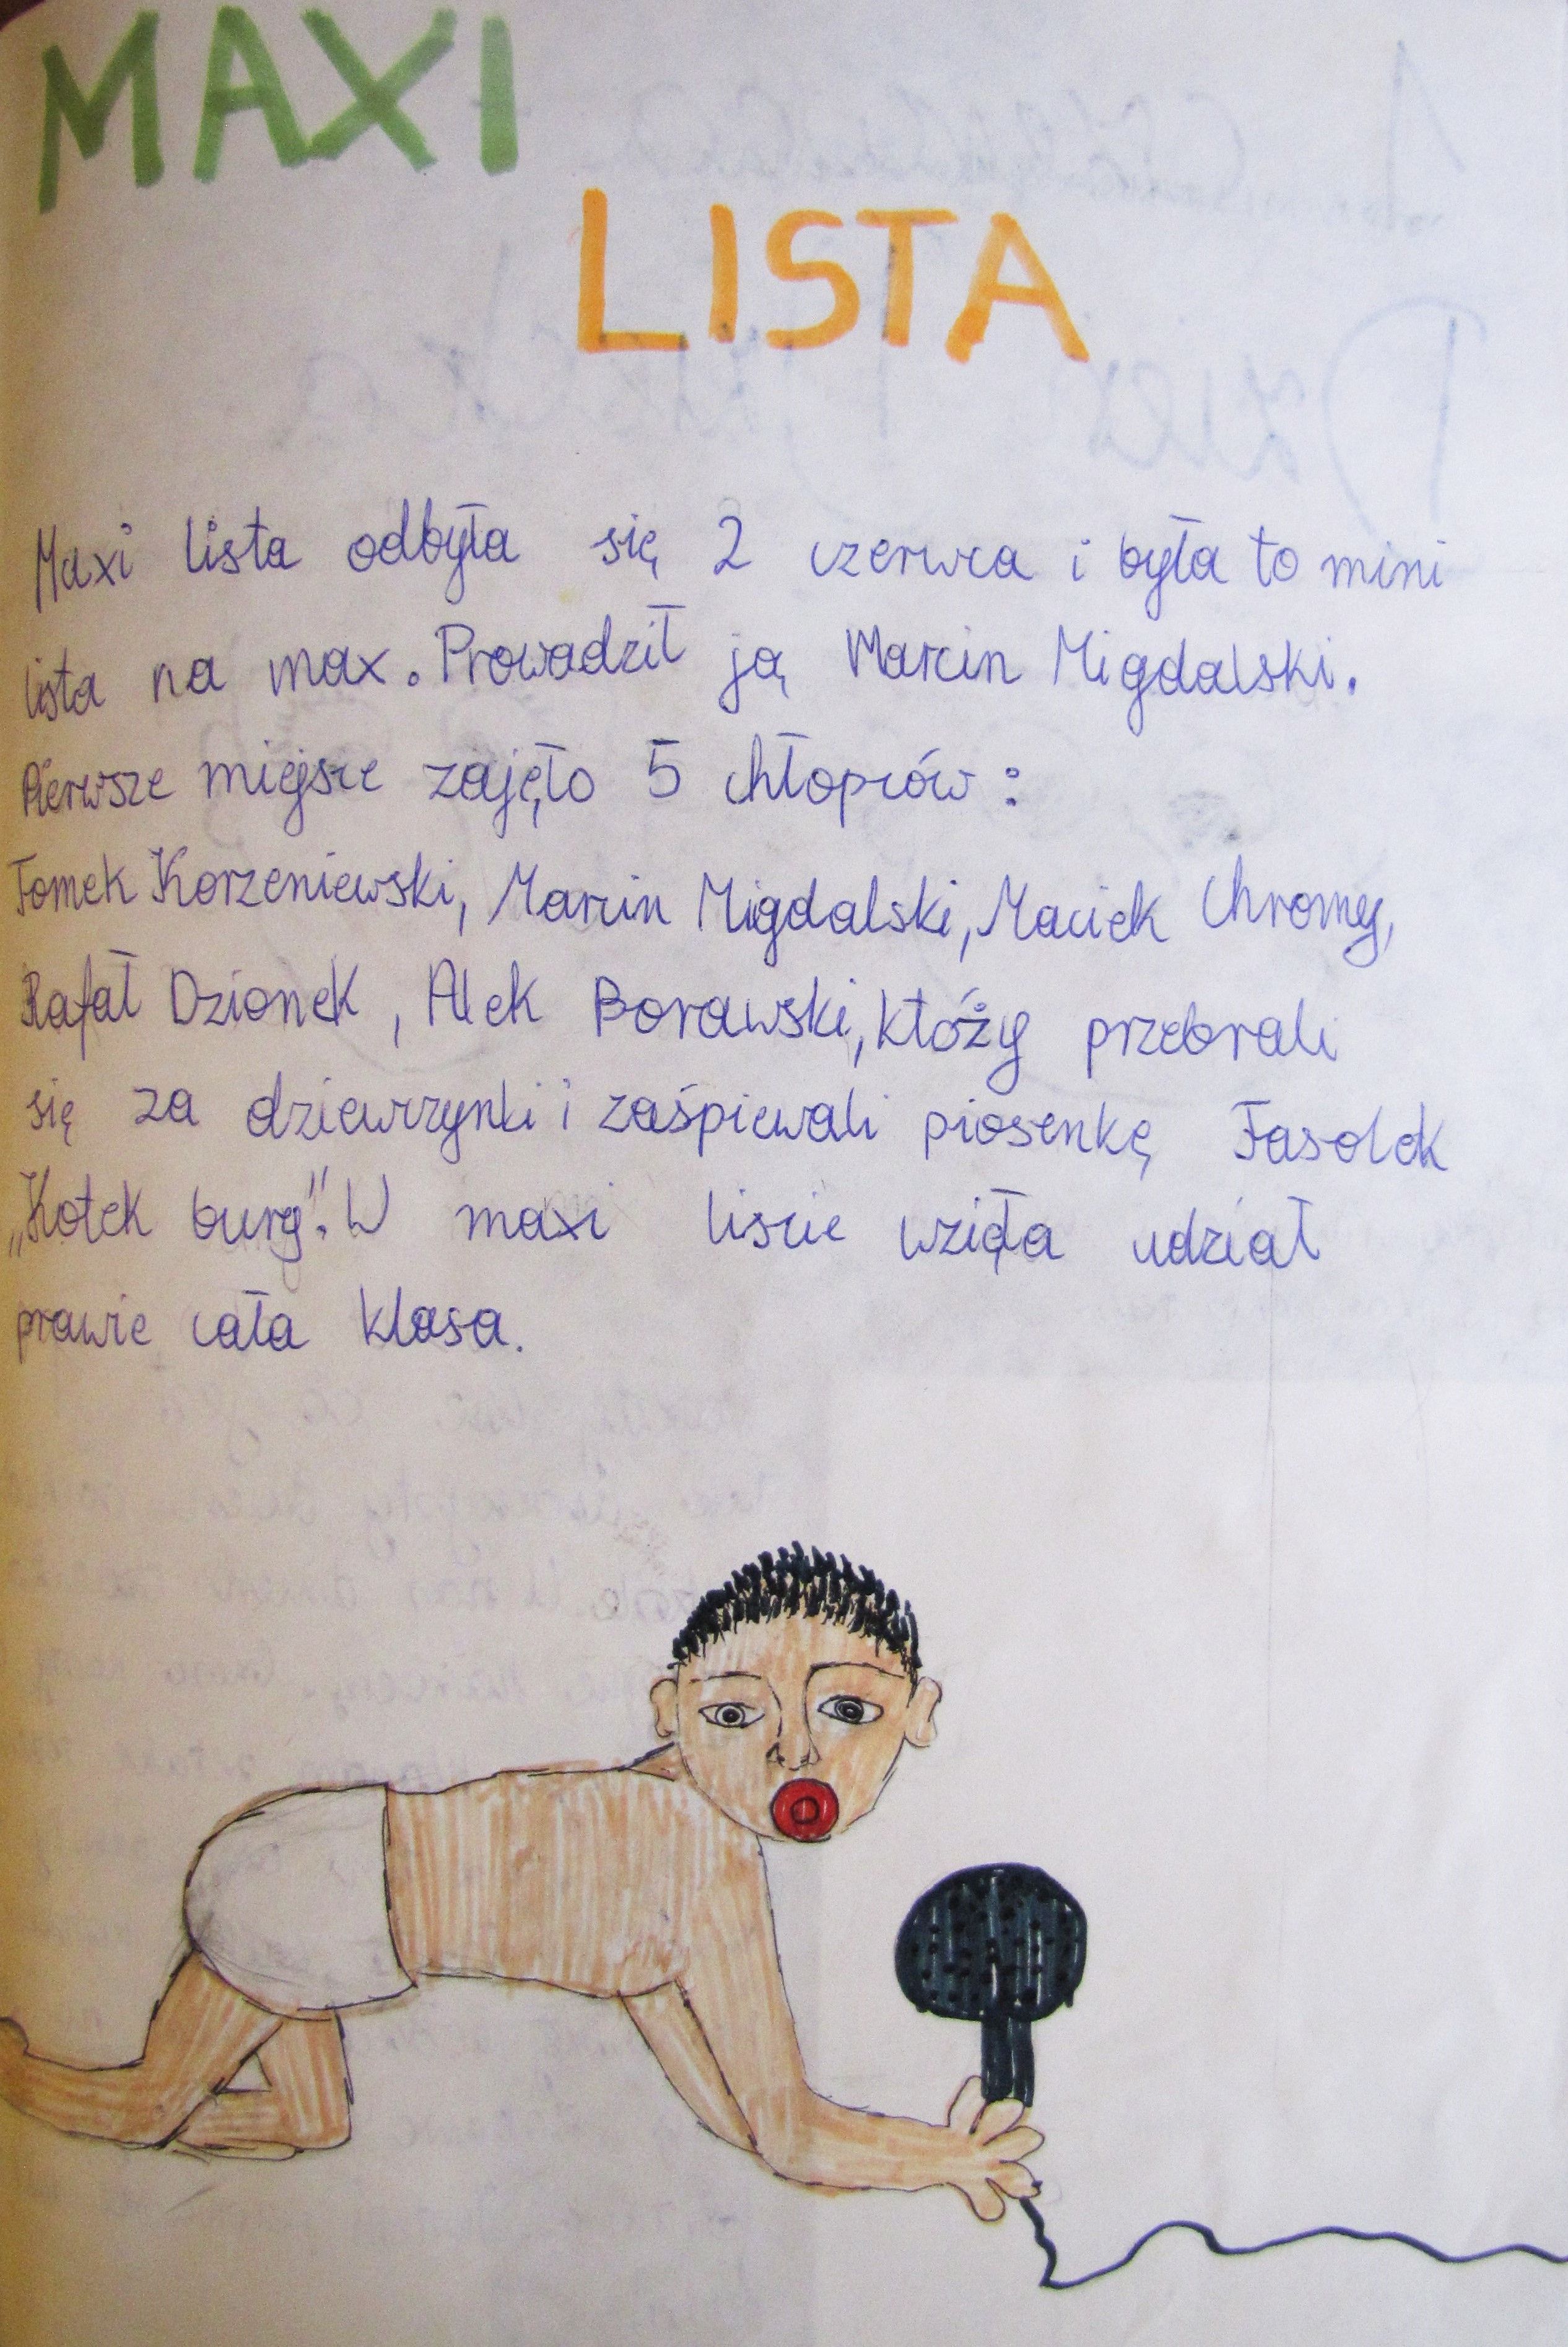 MAXI
LISTA
Maxi lista odbyła się 2 czerwca i była to mini
lista na max. Prowadził ją Marcin Migdalski.
Pierwsze miejsce zajęło 5 chłopców:
Tomek Korzeniewski, Marcin Migdalski, Maciek Chromy,
Rafał Dzionek, Alek Borawski, któży przebrali
się za dziewczynki i zaśpiewali piosenkę Fasolek
„Kotek burg". W maxi liście wzięła udział
prawie cała klasa.